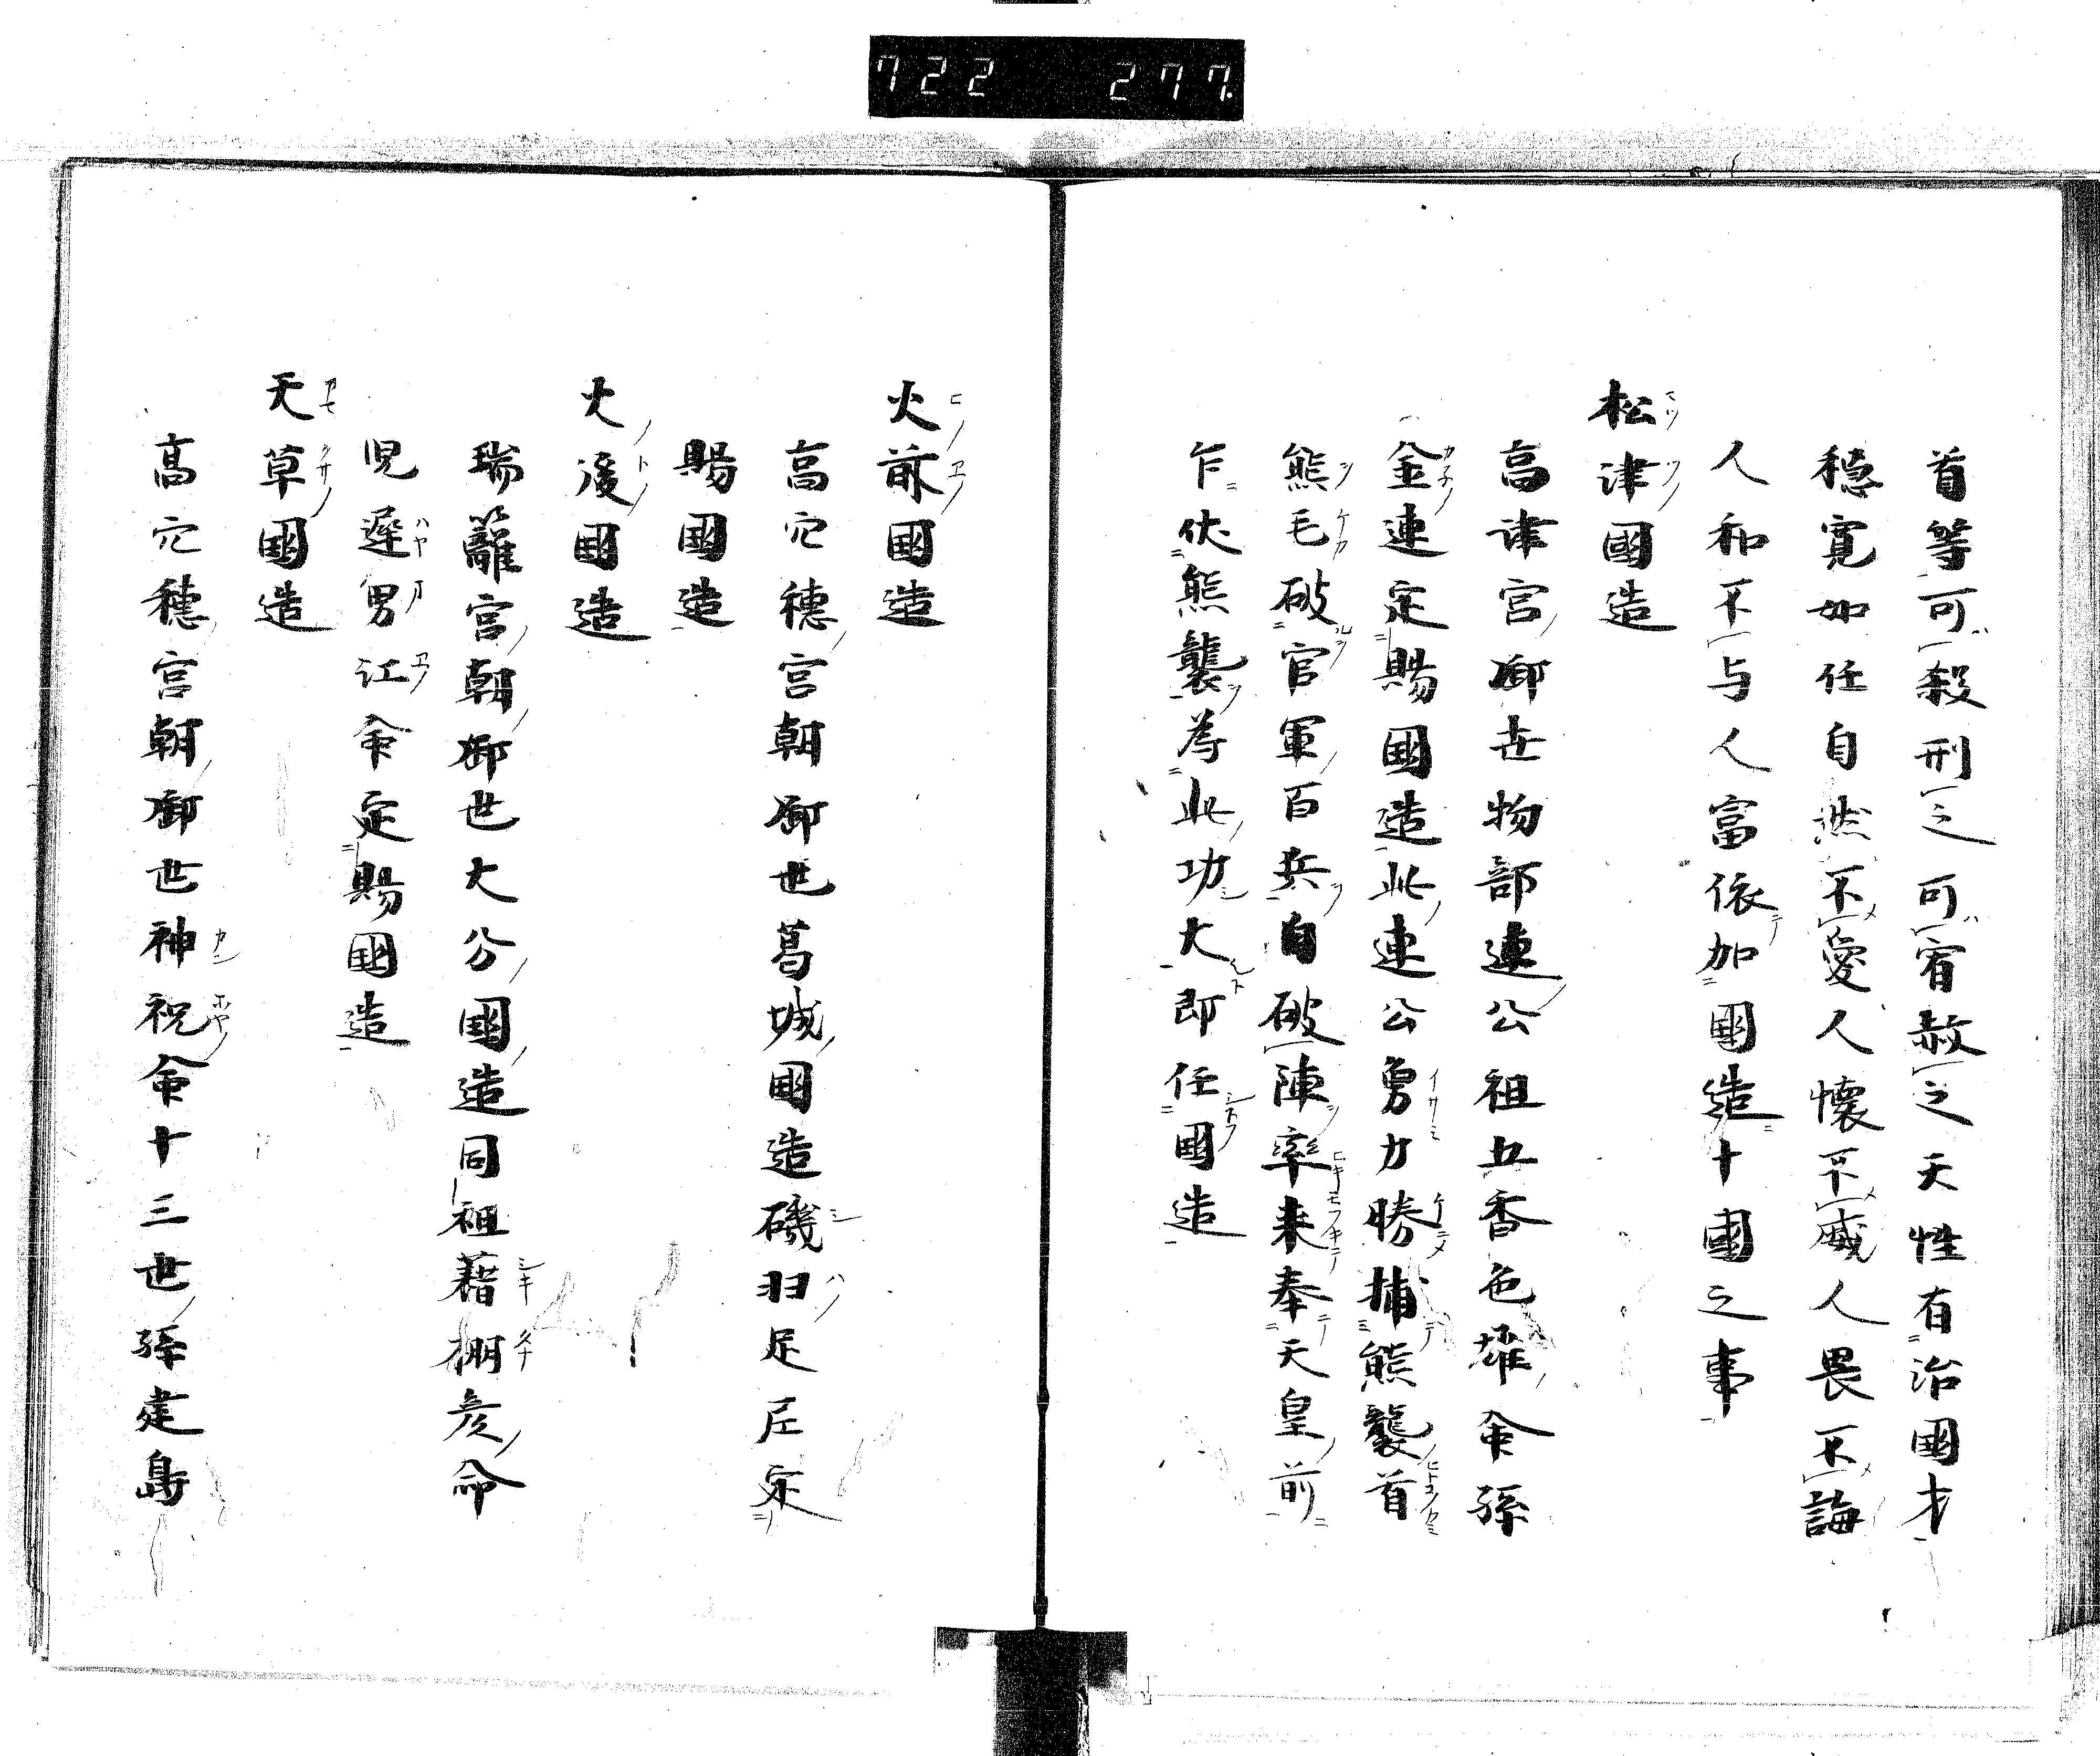 722 277
首等可殺刑之可宥赦之天性有治國才
穏寛如任自然不愛人懐不威人畏不誨
人和不与人富依加國造十國之事
松津國造
高津宮御世物部連公祖五香色雄命孫
金連定賜國造此連公勇力勝捕熊襲首
熊毛破官軍百兵自破陣率来奉天皇前
乍伏熊襲為此功大即任國造
火前國造
高穴穂宮朝御世葛城國造磯羽足尼定
賜國造
火後國造
瑞籬宮朝御世大分國造同祖藉棚彦命
児遅男江命定賜國造
天草國造
高穴穂宮朝御世神祝命十三世孫建島